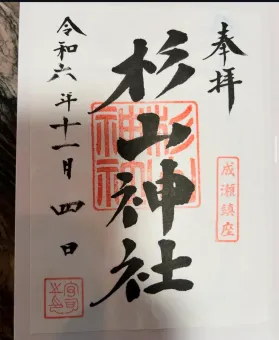 奉拝
成瀬鎮座
杉山神社
杉山神社
令和六年十一月四日